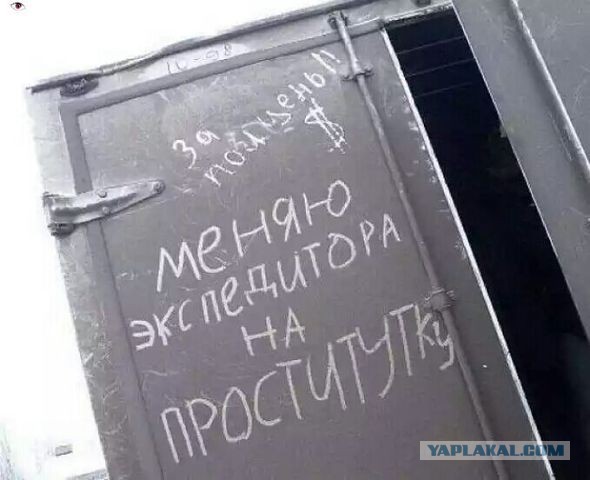 10-98
За
полцены!!
$
Меняю
экспедитора
на
проститутку
YAPLAKAL.COM